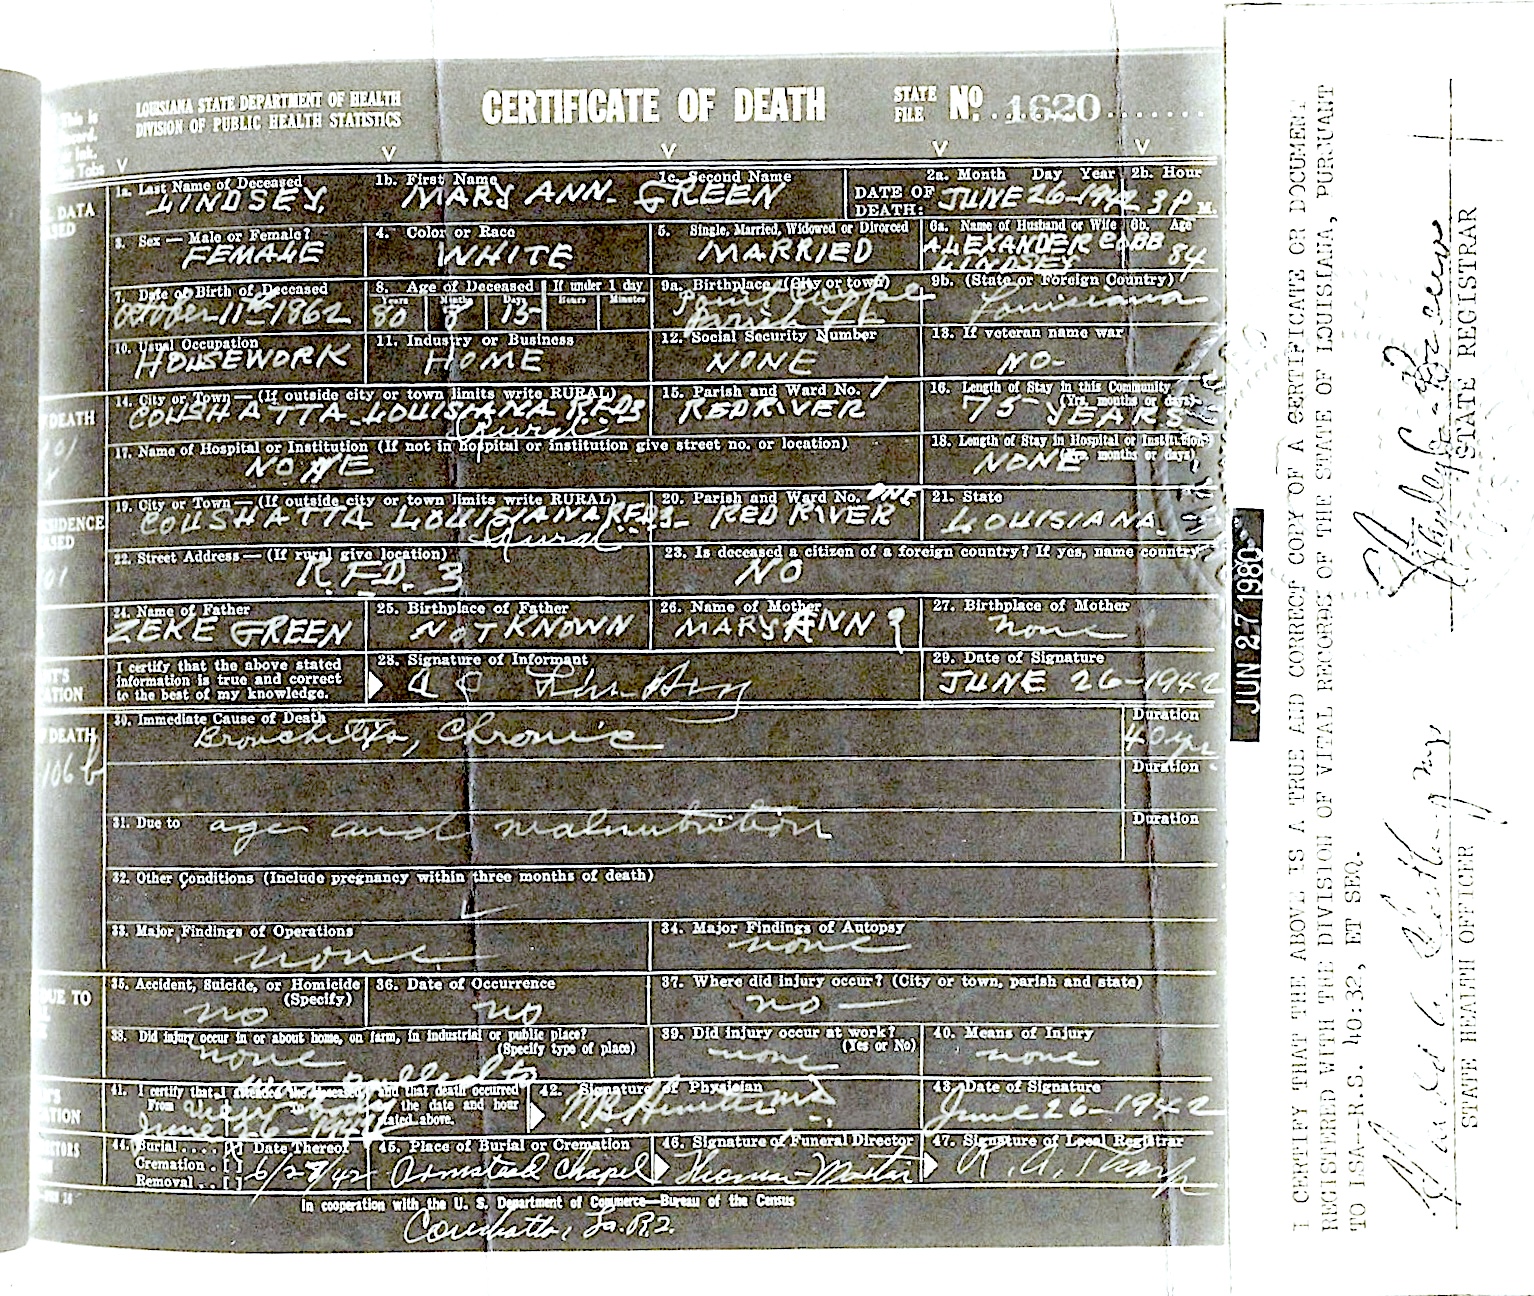 This is
LOUISIANA STATE DEPARTMENT OF HEALTH
DIVISION OF PUBLIC HEALTH STATISTICS
CERTIFICATE OF DEATH
STATE FILE No. 1620
1a. Last Name of Deceased 1b. First Name 1c. Second Name 2a. Month Day Year 2b. Hour
LINDSEY. MARY ANN. GREEN DATE OF DEATH: JUNE 26-1942 3 P M.
3. Sex — Male or Female? 4. Color or Race 5. Single, Married, Widowed or Divorced 6a. Name of Husband or Wife 6b. Age
FEMALE WHITE MARRIED ALEXANDER COBB LINDSEY 84
7. Date of Birth of Deceased 8. Age of Deceased If under 1 day 9a. Birthplace (City or town) 9b. (State or Foreign Country)
Years Months Days Hours Minutes
October 11th 1862 80 8 15 Louisiana
10. Usual Occupation 11. Industry or Business 12. Social Security Number 13. If veteran name war
HOUSEWORK HOME NONE NO-
14. City or Town — (If outside city or town limits write RURAL) 15. Parish and Ward No. 1 16. Length of Stay in this Community
(Yrs. months or days)
COUSHATTA LOUISIANA R.F.D3 RED RIVER 75 YEARS
Rural
17. Name of Hospital or Institution (If not in hospital or institution give street no. or location) 18. Length of Stay in Hospital or Institution
(Yrs. months or days)
NONE NONE
19. City or Town — (If outside city or town limits write RURAL) 20. Parish and Ward No. ONE 21. State
COUSHATTA LOUISIANA R.F.D3 RED RIVER LOUISIANA.
Rural
22. Street Address — (If rural give location) 23. Is deceased a citizen of a foreign country? If yes, name country
R.F.D. 3 NO
24. Name of Father 25. Birthplace of Father 26. Name of Mother 27. Birthplace of Mother
ZEKE GREEN NOT KNOWN MARY ANN ? none
I certify that the above stated information is true and correct to the best of my knowledge.
28. Signature of Informant 29. Date of Signature
JUNE 26-1942
30. Immediate Cause of Death Duration
Bronchitis, Chronic 40 yrs
Duration
106 b
31. Due to age and malnutrition Duration
32. Other Conditions (Include pregnancy within three months of death)
33. Major Findings of Operations 34. Major Findings of Autopsy
none none
35. Accident, Suicide, or Homicide (Specify) 36. Date of Occurrence 37. Where did injury occur? (City or town, parish and state)
no no no
38. Did injury occur in or about home, on farm, in industrial or public place? (Specify type of place) 39. Did injury occur at work? (Yes or No) 40. Means of Injury
none none none
41. I certify that I attended the deceased and that death occurred
From to the date and hour stated above.
was called to view body June 26-1942
42. Signature of Physician 43. Date of Signature
June 26-1942
44. Burial [X] Date Thereof 45. Place of Burial or Cremation 46. Signature of Funeral Director 47. Signature of Local Registrar
Cremation . . [ ]
Removal . . [ ]
Armstead Chapel Thomas-Martin
In cooperation with the U. S. Department of Commerce—Bureau of the Census
Coushatta, La. R2.
JUN 27 1980
I CERTIFY THAT THE ABOVE IS A TRUE AND CORRECT COPY OF A CERTIFICATE OR DOCUMENT
REGISTERED WITH THE DIVISION OF VITAL RECORDS OF THE STATE OF LOUISIANA, PURSUANT
TO LSA--R.S. 40:32, ET SEQ.
STATE HEALTH OFFICER
STATE REGISTRAR